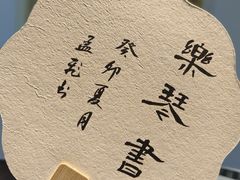 樂琴書
癸卯夏月
孟飛书